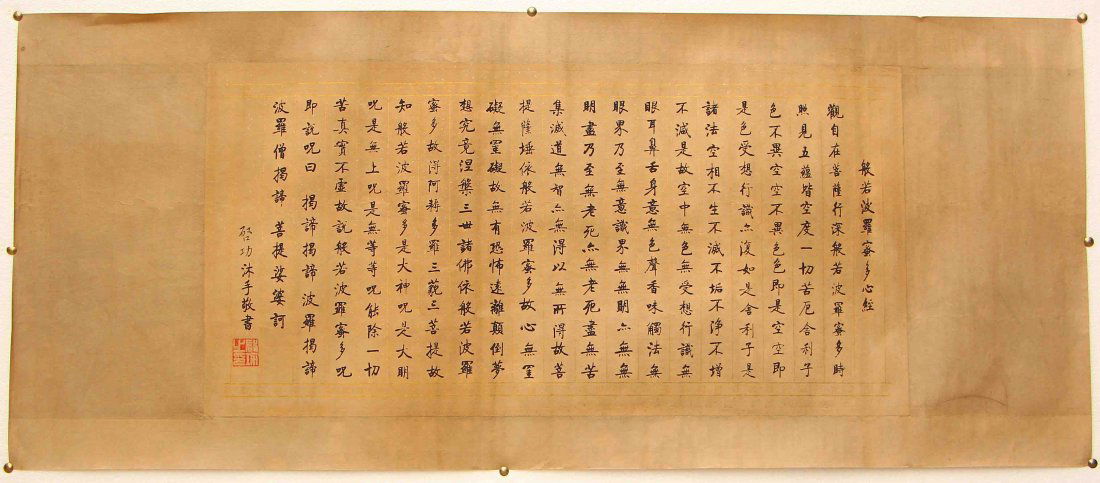 般若波羅蜜多心經
觀自在菩薩行深般若波羅蜜多時
照見五蘊皆空度一切苦厄舍利子
色不異空空不異色色即是空空即
是色受想行識亦復如是舍利子是
諸法空相不生不滅不垢不淨不增
不減是故空中無色無受想行識無
眼耳鼻舌身意無色聲香味觸法無
眼界乃至無意識界無無明亦無無
明盡乃至無老死亦無老死盡無苦
集滅道無智亦無得以無所得故菩
提薩埵依般若波羅蜜多故心無罣
礙無罣礙故無有恐怖遠離顛倒夢
想究竟涅槃三世諸佛依般若波羅
蜜多故得阿耨多羅三藐三菩提故
知般若波羅蜜多是大神呪是大明
呪是無上呪是無等等呪能除一切
苦真實不虛故說般若波羅蜜多呪
即說呪曰 揭諦揭諦波羅揭諦
波羅僧揭諦 菩提娑婆訶
啓功沐手敬書